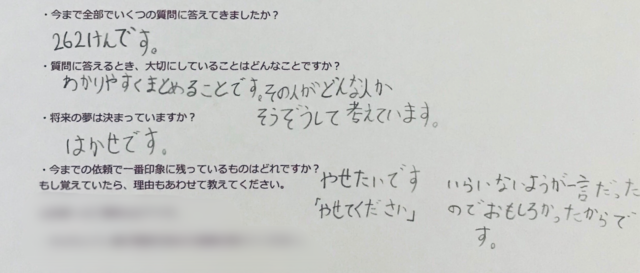 ・今まで全部でいくつの質問に答えてきましたか？
262けんです。
・質問に答えるとき、大切にしていることはどんなことですか？
わかりやすくまとめることです。その人がどんな人か
そうぞうして考えています。
・将来の夢は決まっていますか？
はかせです。
・今までの依頼で一番印象に残っているものはどれですか？
もし覚えていたら、理由もあわせて教えてください。
やせたいです
「やせてください」
いらいないようが一言だった
のでおもしろかったからで
す。